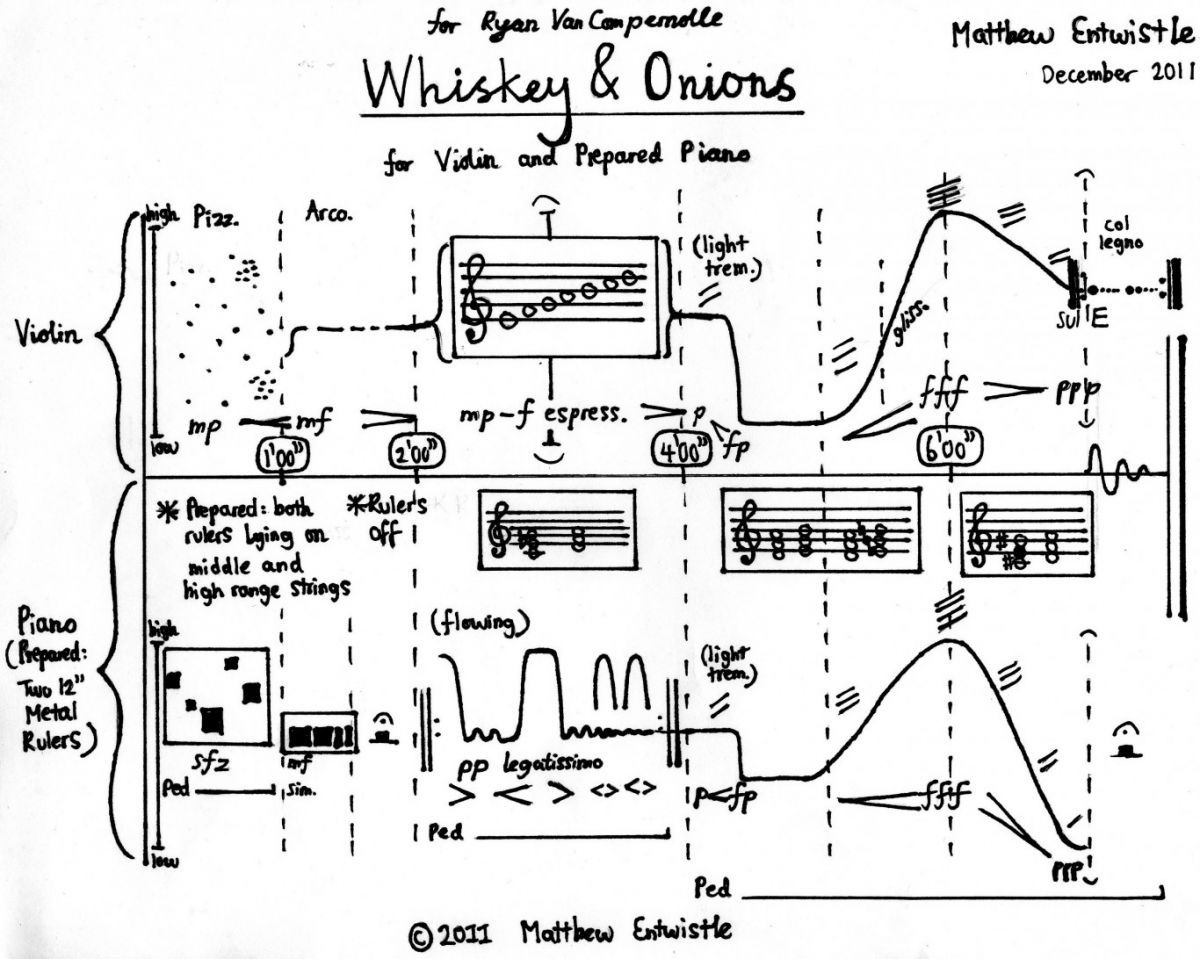 for Ryan Van Compernolle
Matthew Entwistle
December 2011
Whiskey & Onions
for Violin and Prepared Piano
Violin
high
Pizz.
Arco.
(light
trem.)
col
legno
gliss.
sul E
mp
mf
mp-f espress.
p
fp
fff
ppp
low
1'00"
2'00"
4'00"
6'00"
* Prepared: both
rulers lying on
middle and
high range strings
*Rulers
off
Piano
(Prepared:
Two 12"
Metal
Rulers)
high
(flowing)
(light
trem.)
sfz
mf
pp legatissimo
p
fp
fff
ppp
Ped
sim.
Ped
low
Ped
© 2011 Matthew Entwistle